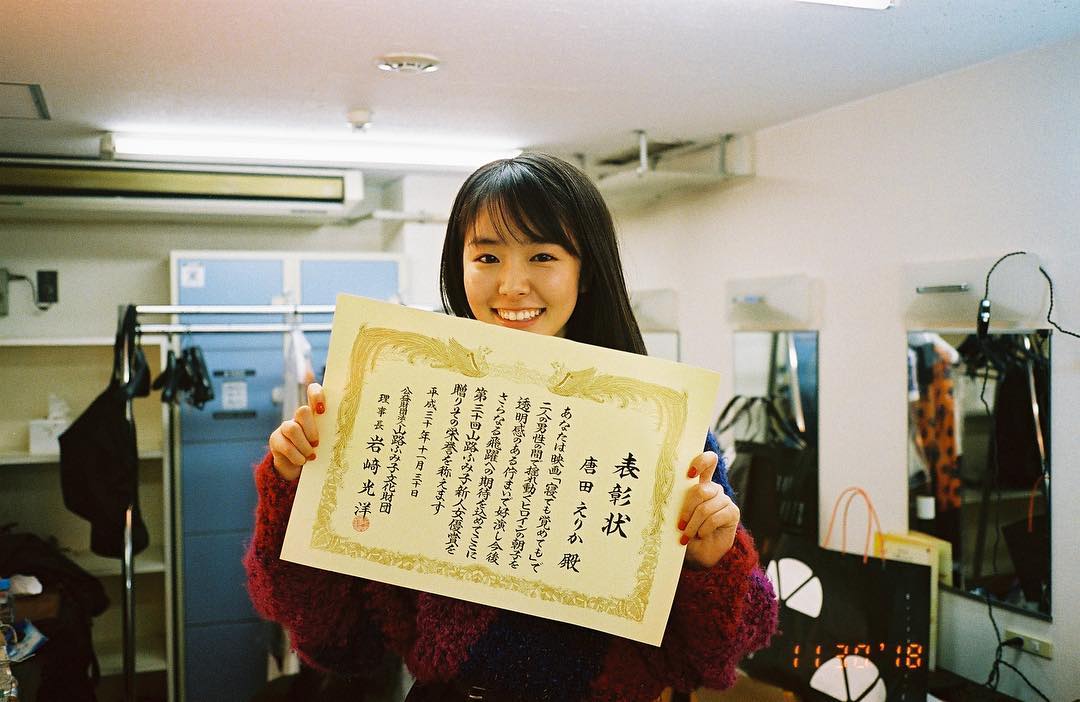 表彰状
唐田 えりか 殿
あなたは映画「寝ても覚めても」で
二人の男性の間で揺れ動くヒロインの朝子を
透明感のある佇まいで好演し今後
さらなる飛躍への期待を込めてここに
第三十回山路ふみ子新人女優賞を
贈りその栄誉を称えます
平成三十年十一月三十日
公益財団法人山路ふみ子文化財団
理事長 岩崎光洋
11 30 '18